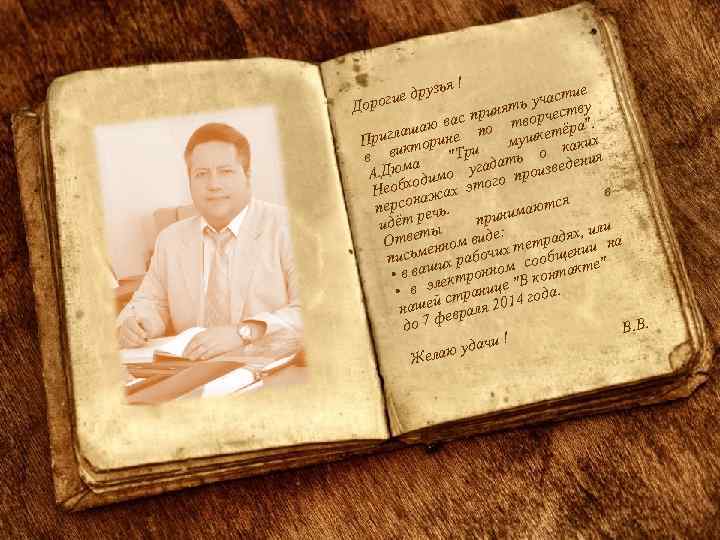 Дорогие друзья !
Приглашаю вас принять участие
в викторине по творчеству
А.Дюма "Три мушкетёра".
Необходимо угадать о каких
персонажах этого произведения
идёт речь.
Ответы принимаются в
письменном виде:
• в ваших рабочих тетрадях, или
• в электронном сообщении на
нашей странице "В контакте"
до 7 февраля 2014 года.
Желаю удачи !
В.В.